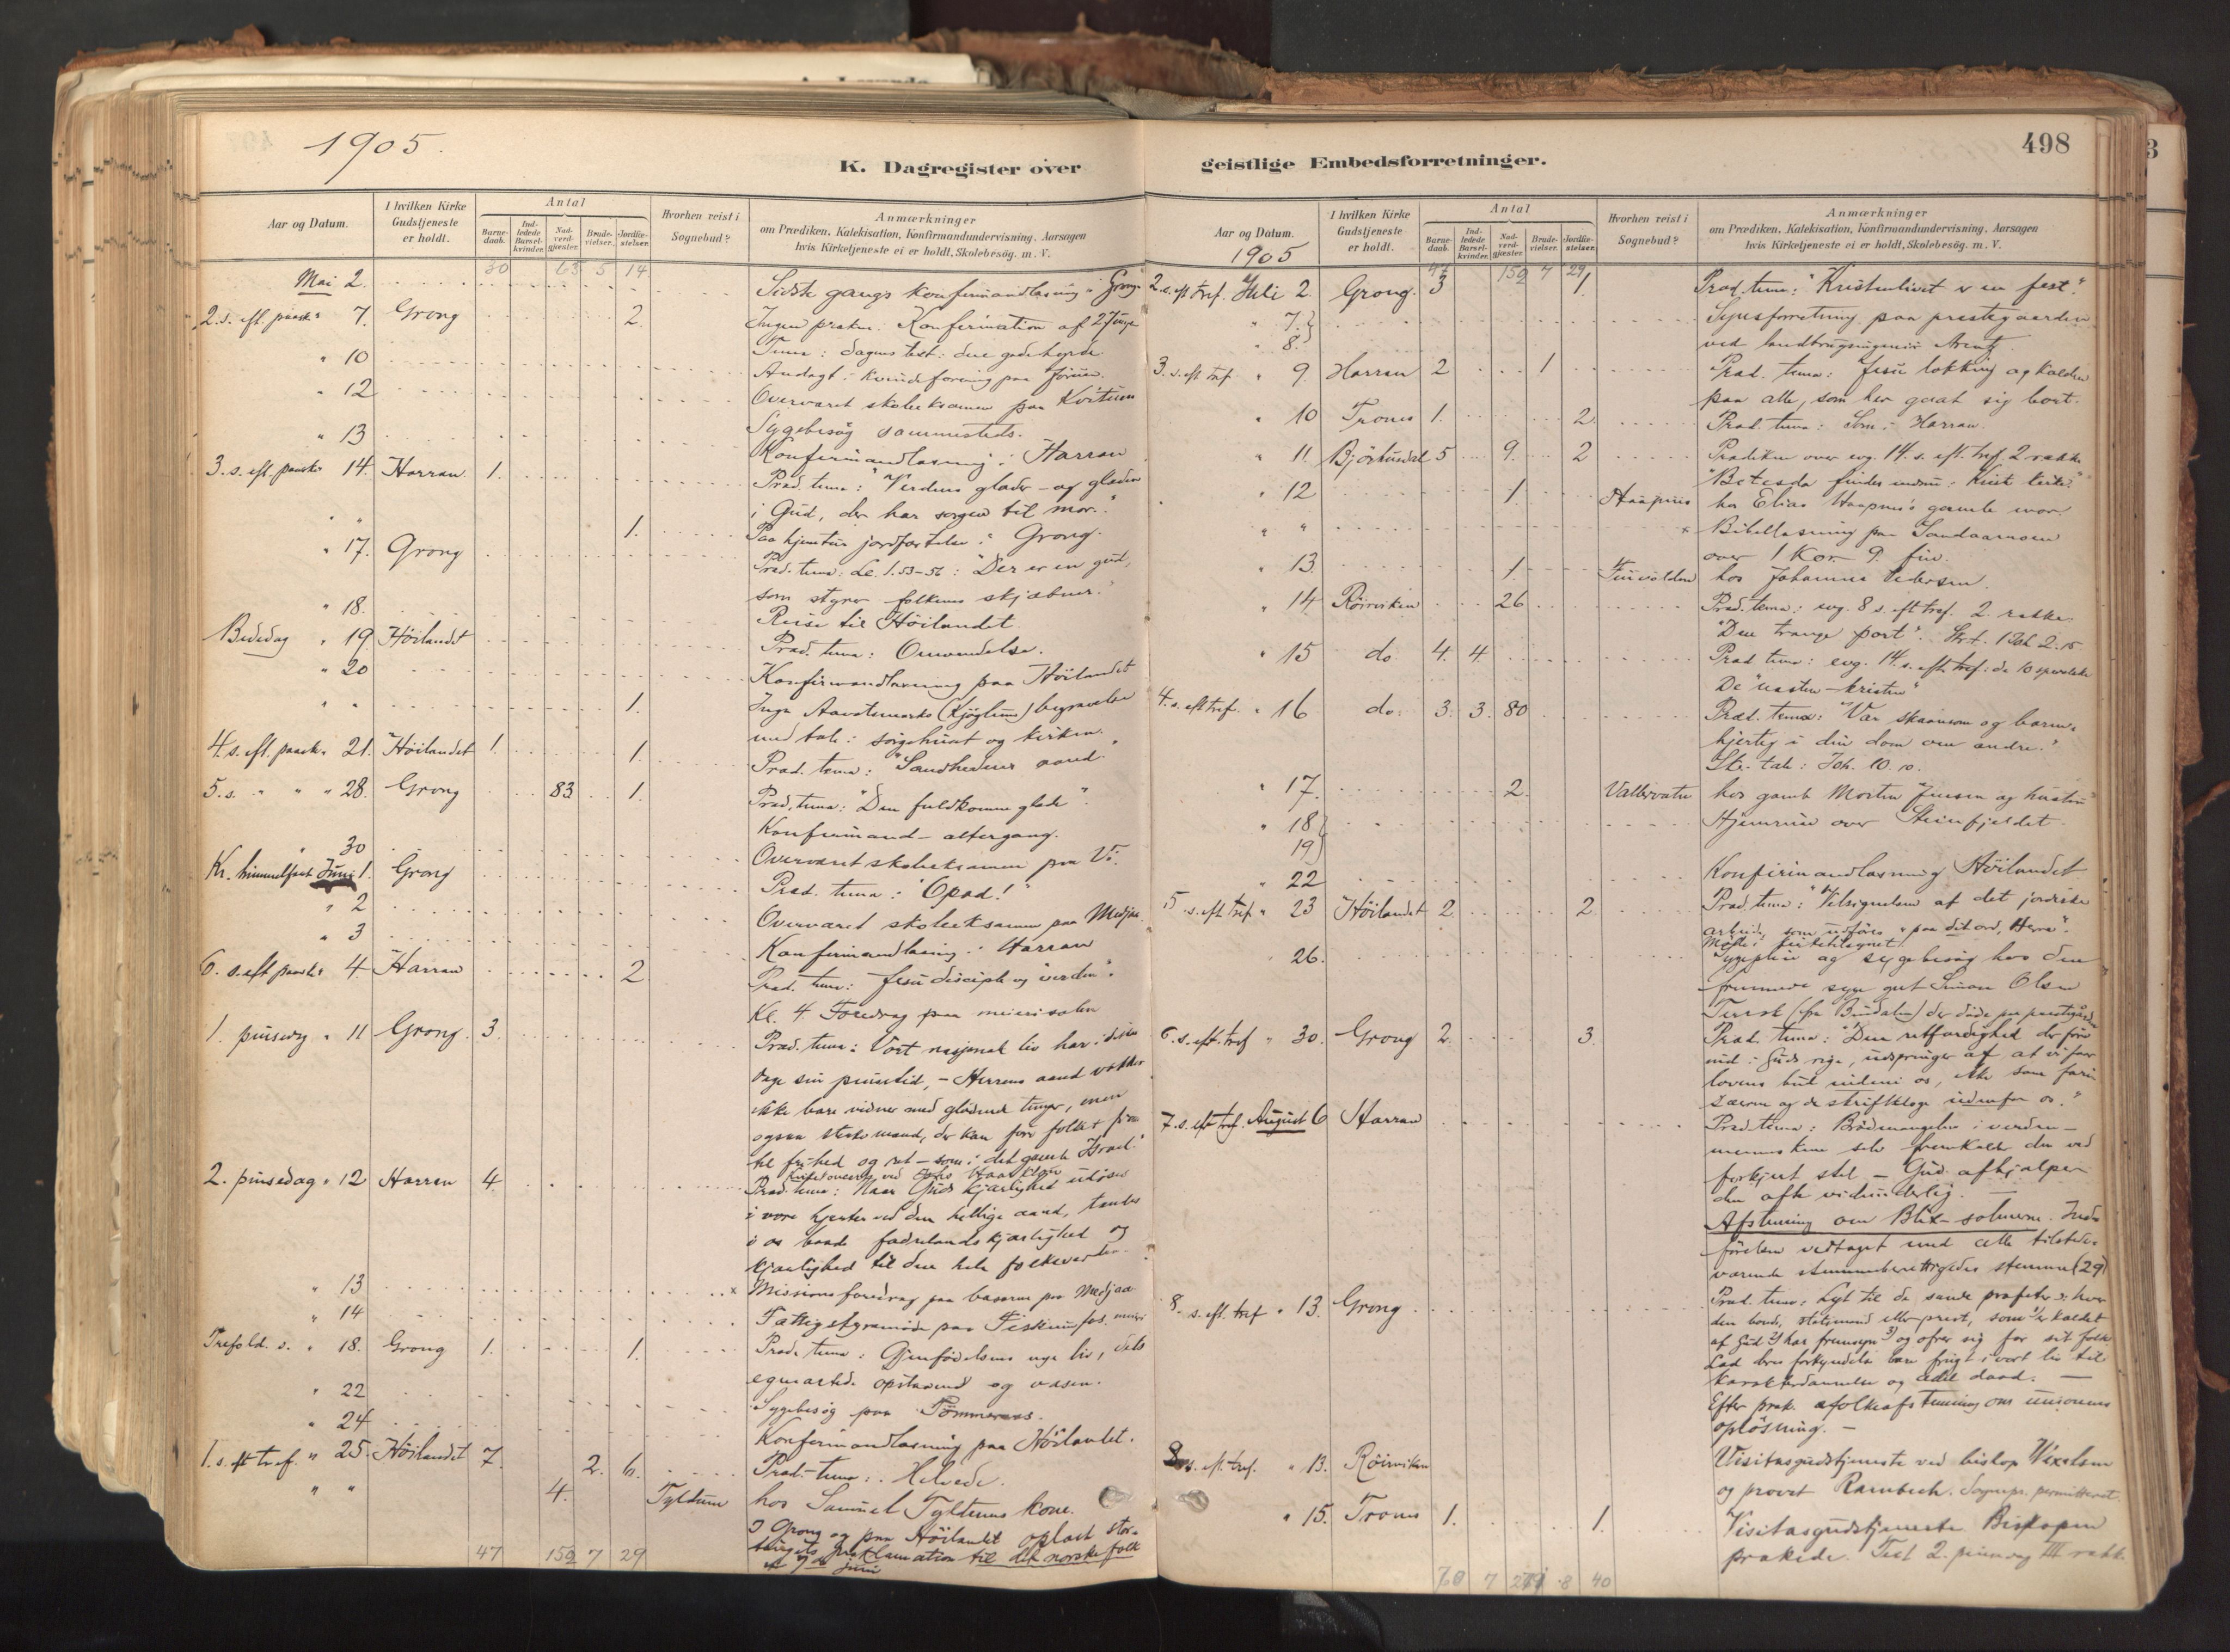 1905.
498
K. Dagregister over
geistlige Embedsforretninger.
Aar og Datum.
I hvilken Kirke Gudstjeneste er holdt.
Antal
Barnedaab.
Indledede Barselkvinder.
Nadverdgjæster.
Brudevielser.
Jordfæstelser.
Hvorhen reist i Sognebud?
Anmærkninger
om Prædiken, Katekisation, Konfirmandundervisning, Aarsagen
hvis Kirketjeneste ei er holdt, Skolebesøg. m. V.
30 63 5 14
Mai 2. Sidste gangs konfirmandlæsning i Grong
2. s. eft. paaske 7. Grong 2. Ingen præken. Konfirmation af
Tema: dagens text: den gode hyrde.
" 10 Andagt i kvindeforening paa
" 12 Overværet skoleeksamen paa
" 13 Sygebesøg sammesteds.
Konfirmandlæsning i Harran
3. s. eft. paaske 14. Harran 1. Præd. tema: "Verdens glæder - og glæden
i Gud, der har sorgen til mor."
" " 1. Paa jordfæstelse i Grong.
" 17. Grong Præd. tema: Lc. 1.53-56: "Der er en gud,
som styrer folkenes skjæbner."
" 18. Reise til Höilandet.
Bededag " 19 Höilandet Præd. tema: Omvendelse.
" 20 Konfirmandlæsning paa Höilandet
" " 1. begravelse
med tale i sørgehuset og kirken.
4. s. eft. paaske 21. Höilandet 1. 1. Præd. tema: "Sandhedens aand."
5. s. " " " 28. Grong 83 1. Præd. tema: "Den fuldkomne glæde".
Konfirmand-altergang.
" 30 Overværet skoleeksamen paa Vi.
Kr. himmelfart Juni 1. Grong Præd. tema: "Opad!"
" 2 Overværet skoleeksamen paa Medjaa.
" 3 Konfirmandlæsning i Harran
6. s. eft paaske 4. Harran 2 Præd. tema: Jesu disciple og "verden".
Kl. 4 Foredrag paa
1. pinsedag " 11 Grong. 3. Præd. tema: Vort nasjonale liv har i disse
dage sin pinsetid, - Herrens aand vækker
ikke bare vidner med glödende tunger, men
ogsaa sterke mænd, der kan före folket frem
til frihed og ret - som i det gamle Israel.
2. pinsedag " 12 Harran 4. Præd. tema: Naar Guds kjærlighed udöses
i vore hjerter ved den hellige aand, tændes
i os baade fædrelandskjærlighed og
kjærlighed til den hele folkeverden.
" 13 x Missionsforedrag paa basaren paa Medjaa.
" 14 Fattigstyremöde paa Fiskumfos
Trefold. s. " 18. Grong 1. 1. Præd. tema: Gjenfödelsens nye liv, dets
egenartede opstaaend og væsen.
" 22 Sygebesög paa
" 24 Konfirmandlæsning paa Höilandet.
1. s. eft tref. " 25. Höilandet 7. 2. 6. Præd. tema: Helvede.
" " 4. Tyldum hos Samuel Tyldums kone.
I Grong og paa Höilandet oplæst stor-
tingets proklamation til det norske folk
af 7de juni
47 152 7 29
Aar og Datum.
1905
I hvilken Kirke Gudstjeneste er holdt.
Antal
Barnedaab.
Indledede Barselkvinder.
Nadverdgjæster.
Brudevielser.
Jordfæstelser.
Hvorhen reist i Sognebud?
Anmærkninger
om Prædiken, Katekisation, Konfirmandundervisning, Aarsagen
hvis Kirketjeneste ei er holdt, Skolebesøg. m. V.
47 152 7 29
2. s. eft tref. Juli 2. Grong. 3 1. Præd. tema: "Kristenlivet er en fest."
" 7. Synsforretning paa prestegaarden
" 8. ved landbrugsingeniör Arentz.
3. s. eft tref " 9. Harran 2 1 Præd. tema: Jesu lokking og kalden
paa alle, som har gaat sig bort.
" 10 Trones 1. 2. Præd. tema: Som i Harran.
" 11. Björhusdal 5 9. 2 Prædiken over evg. 14. s. eft. tref 2 række
"Betesda findes endnu: Kristi kirke."
" 12 1. Haapnes hos Elias Haapnes's gamle mor.
" " x Bibellæsning paa Sandaamoen
over 1 Kor. 9. fin.
" 13. 1. Finvolden hos Johannes Pedersen.
" 14 Röirviken 26 Præd. tema: evg. 8 s. eft tref. 2. række.
"Den trange port". Skrt. 1 Joh 2.15
" 15 do 4. 4 Præd tema: evg. 14. s. eft. tref: de 10 spedalske
De "næsten-kristne"
4. s. eft tref. " 16 do. 3. 3. 80 Præd. tema: "Vær skaansom og barm-
hjertig i din dom om andre."
Skr. tale: Joh. 10.10.
" 17. 2. hos gamle Morten Jensen og hustru
" 18 Hjemreise over Steinfjeldet.
19
" 22 Konfirmandlæsning Höilandet
5. s. eft tref. " 23 Höilandet 2 2. Præd. tema: "Velsignelsen af det jordiske
arbeide, som udföres "paa dit ord, Herre".
Möde i kirketilsynet.
26. Sygepleie og sygebesög hos den
fremmede syge gut Simon Olsen
Terråk (fra Bindalen) der döde paa prestgården
6. s. eft. tref " 30. Grong 2. 3. Præd. tema: "Den retfærdighed der förer
ind i Guds rige, udspringer af at vi faar
lovens bud indeni os, ikke som fari-
sæerne og de skriftkloge udenfor os."
7. s. eft tref. August 6 Harran Præd tema: Brödmangelen i verden -
menneskene selv fremkalder den ved
forkjert stel - Gud afhjælper
den ofte vidunderlig. -
Afstemning om Blix-salmerne. Ind-
förelsen vedtaget med alle tilstede-
værende stemmeberettigedes stemmer (29)
8. s. eft. tref " 13. Grong. Præd. tema: Lyt til de sande profeter o: hver
den bonde, statsmand eller prest, som 1) er kaldet
af Gud 2) har fremsyn 3) og ofrer sig for sit folk
Lad deres forkyndelse bære frugt i vort liv til
karakterdannelse og ædel daad. -
Efter præk. afolkeafstemning om unionens
oplösning. -
8 s. eft. tref. " 13. Röirviken Visitasgudstjeneste ved biskop Wexelsen
og provst Rambech. Sognepr. permitteret.
" 15. Trones 1. 1. Visitasgudstjeneste Biskopen
prækede. Text 2. pinsedag III række.
70 7 8 40